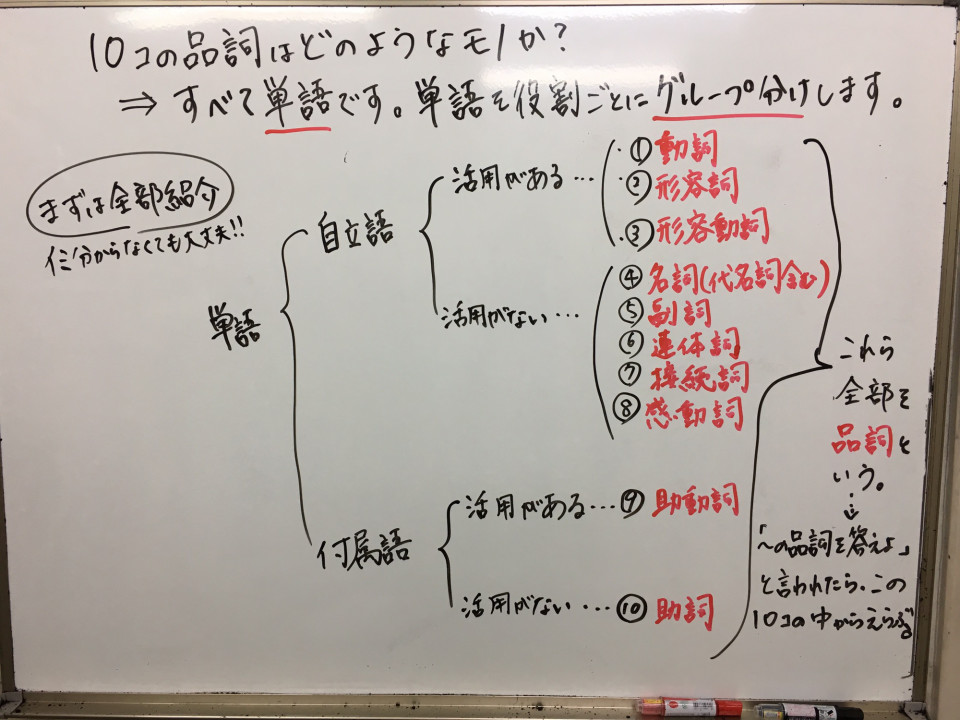 10コの品詞はどのようなモノか?
⇒ すべて単語です。単語を役割ごとにグループ分けします。
まずは全部紹介
イミ分からなくても大丈夫!!
単語
自立語
活用がある…
①動詞
②形容詞
③形容動詞
活用がない…
④名詞(代名詞含む)
⑤副詞
⑥連体詞
⑦接続詞
⑧感動詞
付属語
活用がある…⑨助動詞
活用がない…⑩助詞
これら
全部を
品詞と
いう。
「〜の品詞を答えよ」
と言われたら、この
10コの中からえらぶ